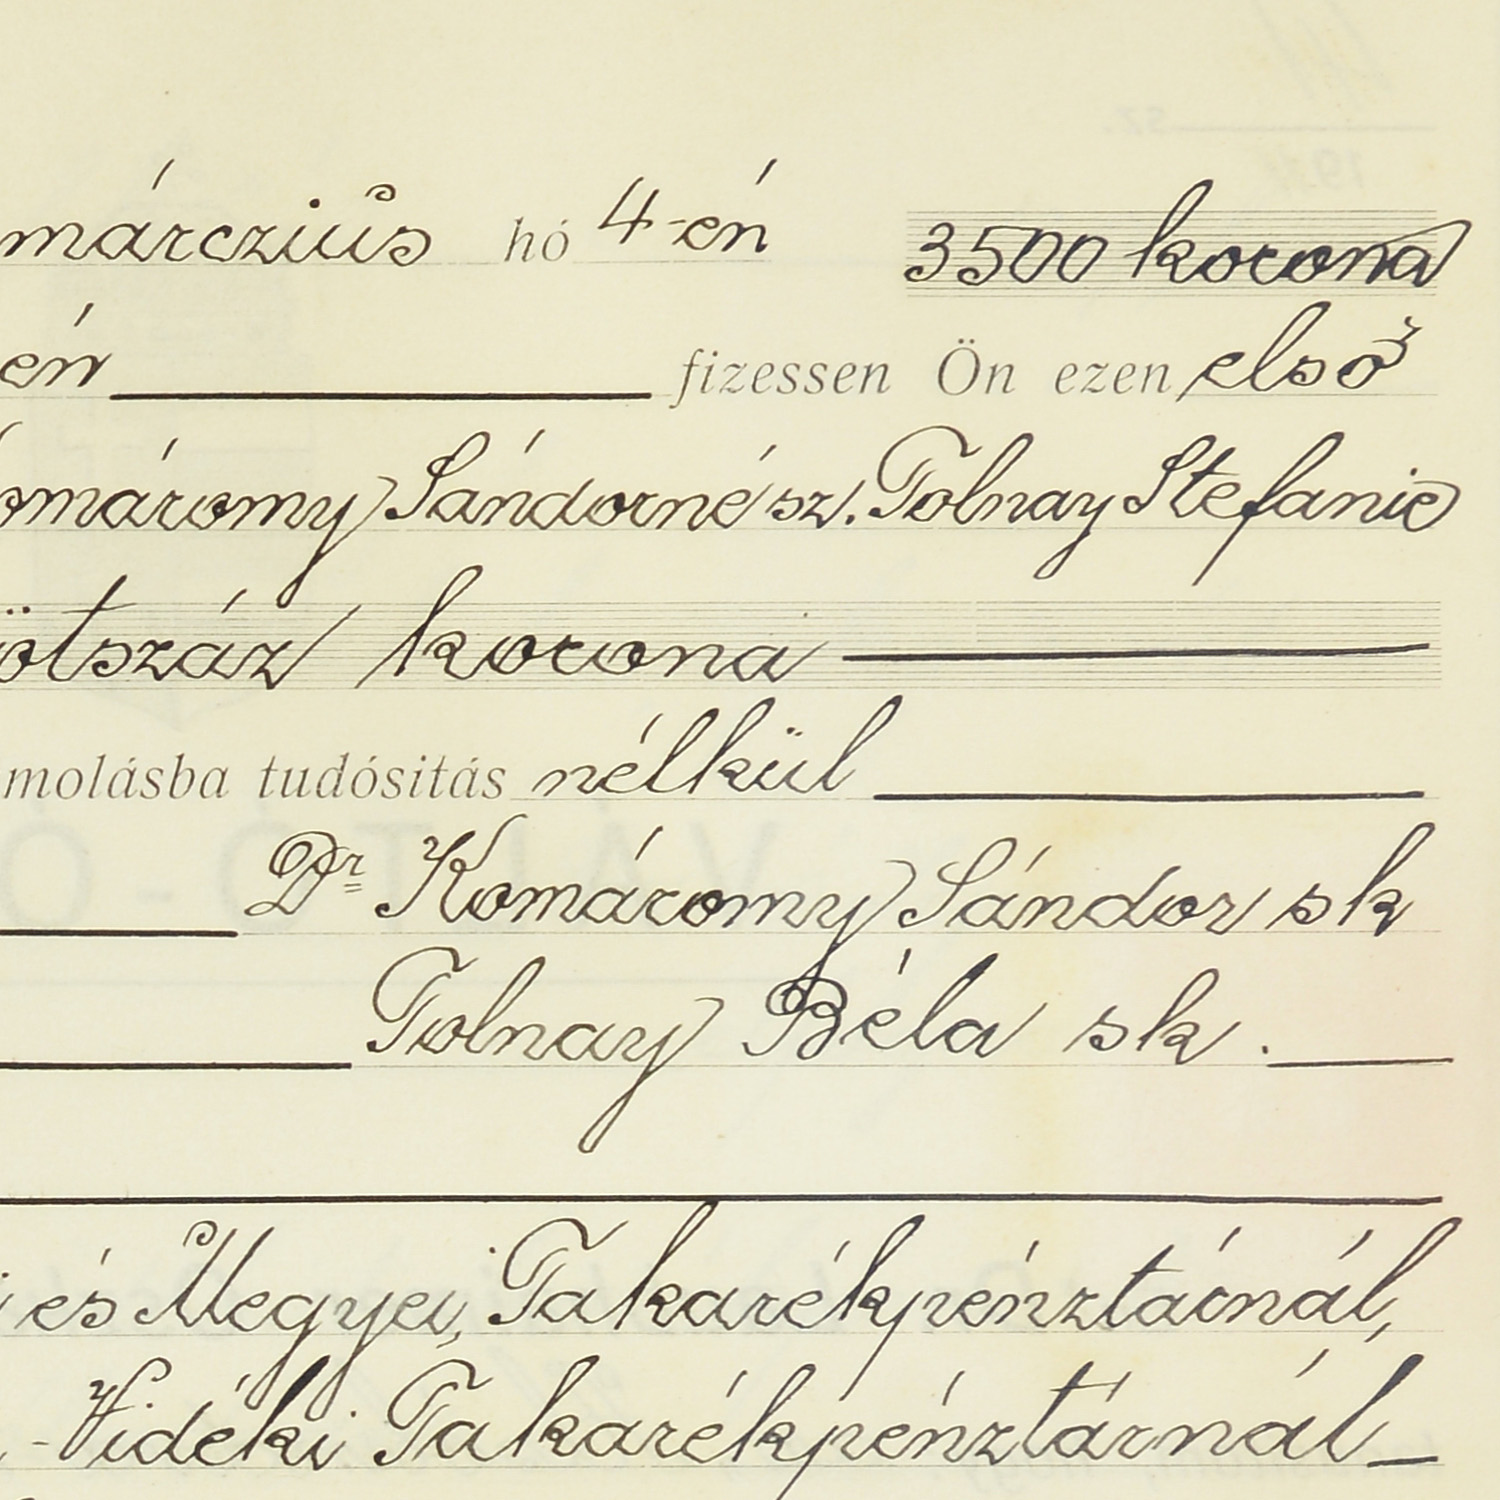 márczius hó 4-én 3500 korona
én fizessen Ön ezen első
omáromy Sándorné sz. Tolnay Stefanie
ötszáz korona
molásba tudósitás nélkül
Dr Komáromy Sándor sk
Tolnay Béla sk.
és Megyei, Takarékpénztárnál,
-Vidéki Takarékpénztárnál